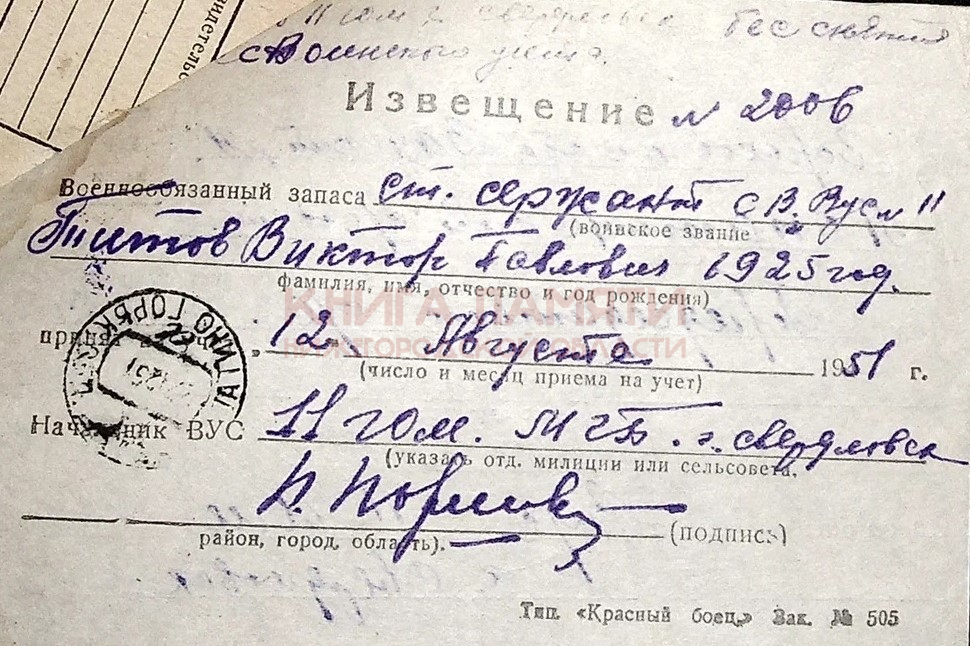 видетельс
11 гом г. свердловск без снятия
с Воинского учета.
Извещение № 2006
Военнообязанный запаса ст. сержант с В. Вус № 11
(воинское звание
Титов Виктор Павлович 1925 год.
фамилия, имя, отчество и год рождения)
КНИГА ПАМЯТИ
НИЖЕГОРОДСКОЙ ОБЛАСТИ
принят „ 12 Августа 1951 г.
(число и месяц приема на учет)
Начальник ВУС 11 гом. МГБ. г. свердловск
(указать отд. милиции или сельсовета,
(подпись)
район, город, область).
Тип. «Красный боец» Зак. № 505